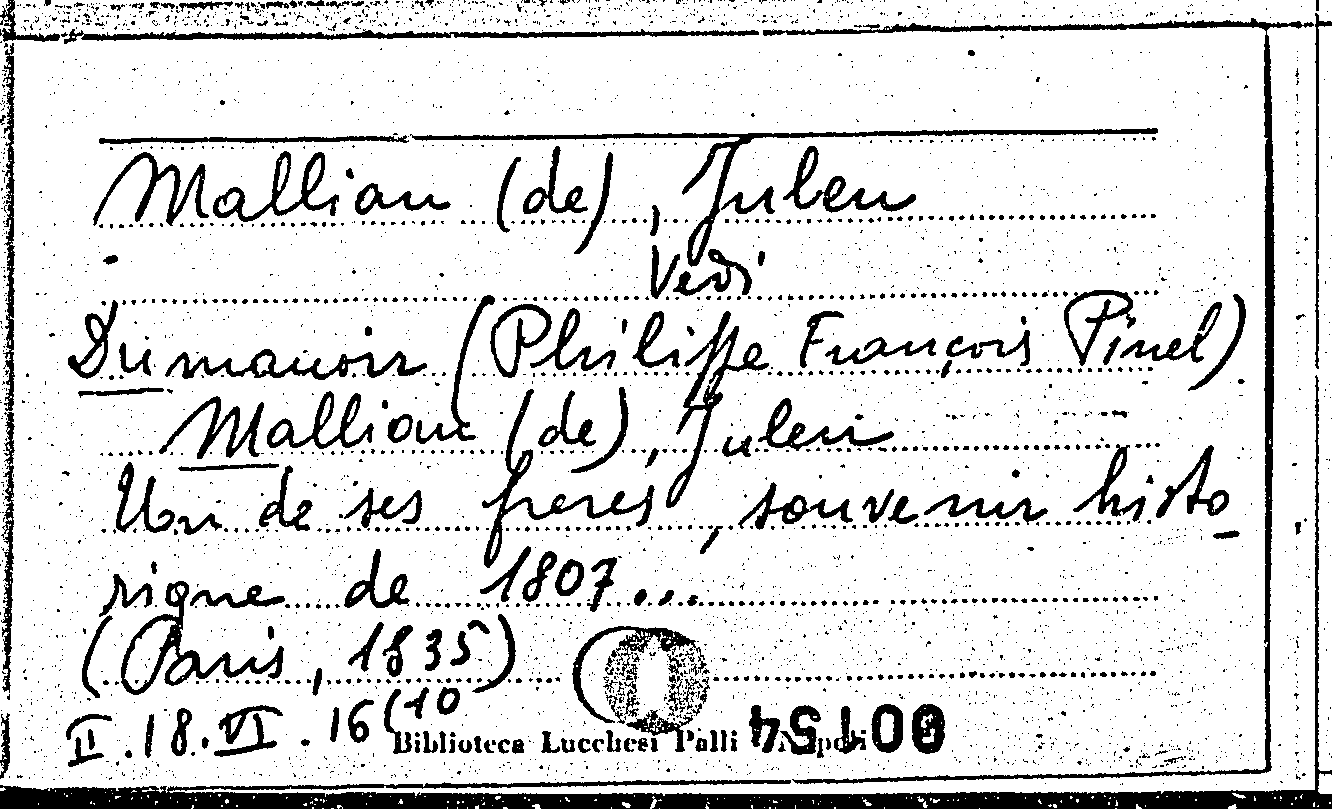 Mallian (de), Julien
Vedi
Dumanoir (Philippe François Pinel)
Mallian (de), Julien
Un de ses freres, souvenir histo
rique de 1807...
(Paris, 1835)
II.18.VI.16(10
Biblioteca Lucchesi Palli Napoli